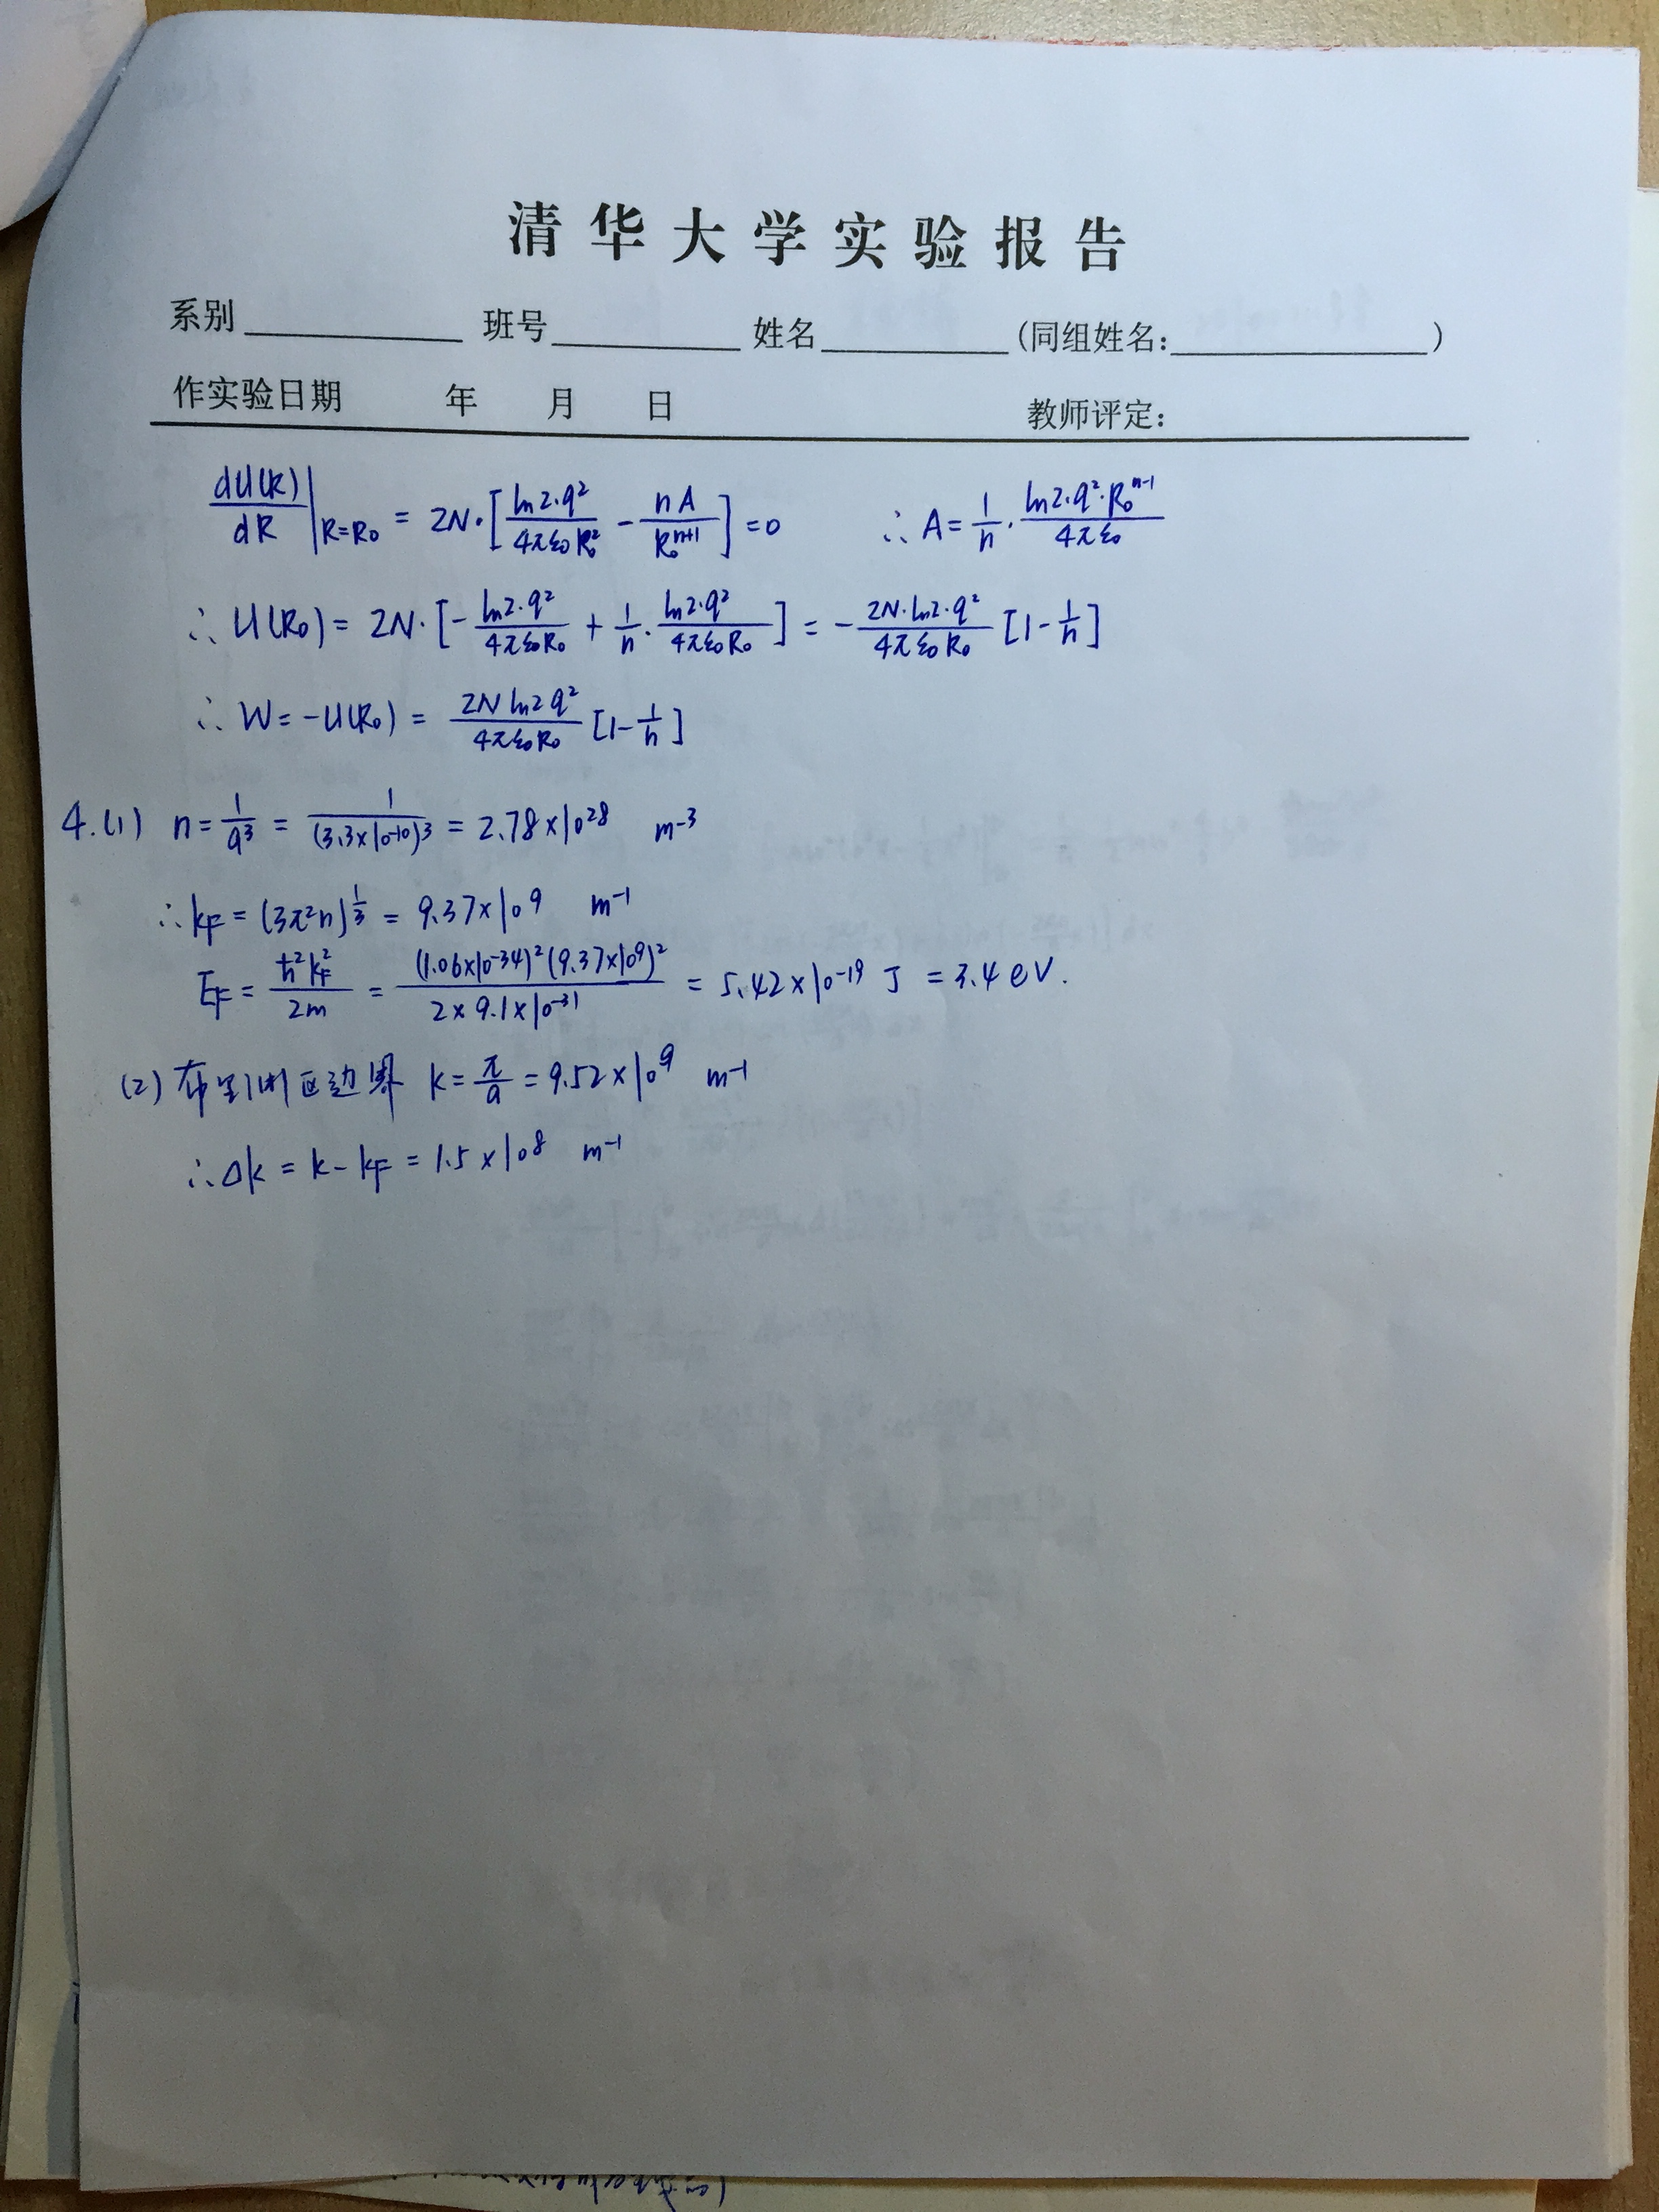 清华大学实验报告
系别 班号 姓名 (同组姓名: )
作实验日期 年 月 日 教师评定:
dU(R)/dR|R=R₀ = 2N·[ln2·q²/4πε₀R₀² - nA/R₀ⁿ⁺¹] = 0 ∴ A = 1/n · ln2·q²·R₀ⁿ⁻¹/4πε₀
∴ U(R₀) = 2N·[-ln2·q²/4πε₀R₀ + 1/n · ln2·q²/4πε₀R₀] = -2N·ln2·q²/4πε₀R₀ [1-1/n]
∴ W = -U(R₀) = 2N ln2 q²/4πε₀R₀ [1-1/n]
4.(1) n = 1/a³ = 1/(3.3×10⁻¹⁰)³ = 2.78×10²⁸ m⁻³
∴ kF = (3π²n)^(1/3) = 9.37×10⁹ m⁻¹
EF = ħ²kF²/2m = (1.06×10⁻³⁴)²(9.37×10⁹)²/2×9.1×10⁻³¹ = 5.42×10⁻¹⁹ J = 3.4 eV.
(2) 布里渊区边界 k = π/a = 9.52×10⁹ m⁻¹
∴ Δk = k - kF = 1.5×10⁸ m⁻¹